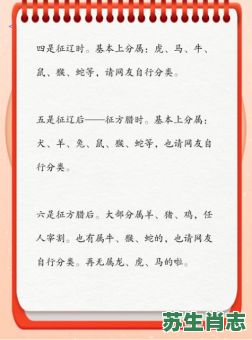 四是征辽时。基本上分属：虎、马、牛、
鼠、猴、蛇等，请网友自行分类。
五是征辽后——征方腊时。基本上分属：
犬、羊、兔、鼠、猴、蛇等，也请网友自
行分类。
六是征方腊后。大部分属羊、猪、鸡，任
人宰割。也有属牛、猴、蛇的，也请网友
自行分类。再无属龙、虎、马的啦。
苏生肖志